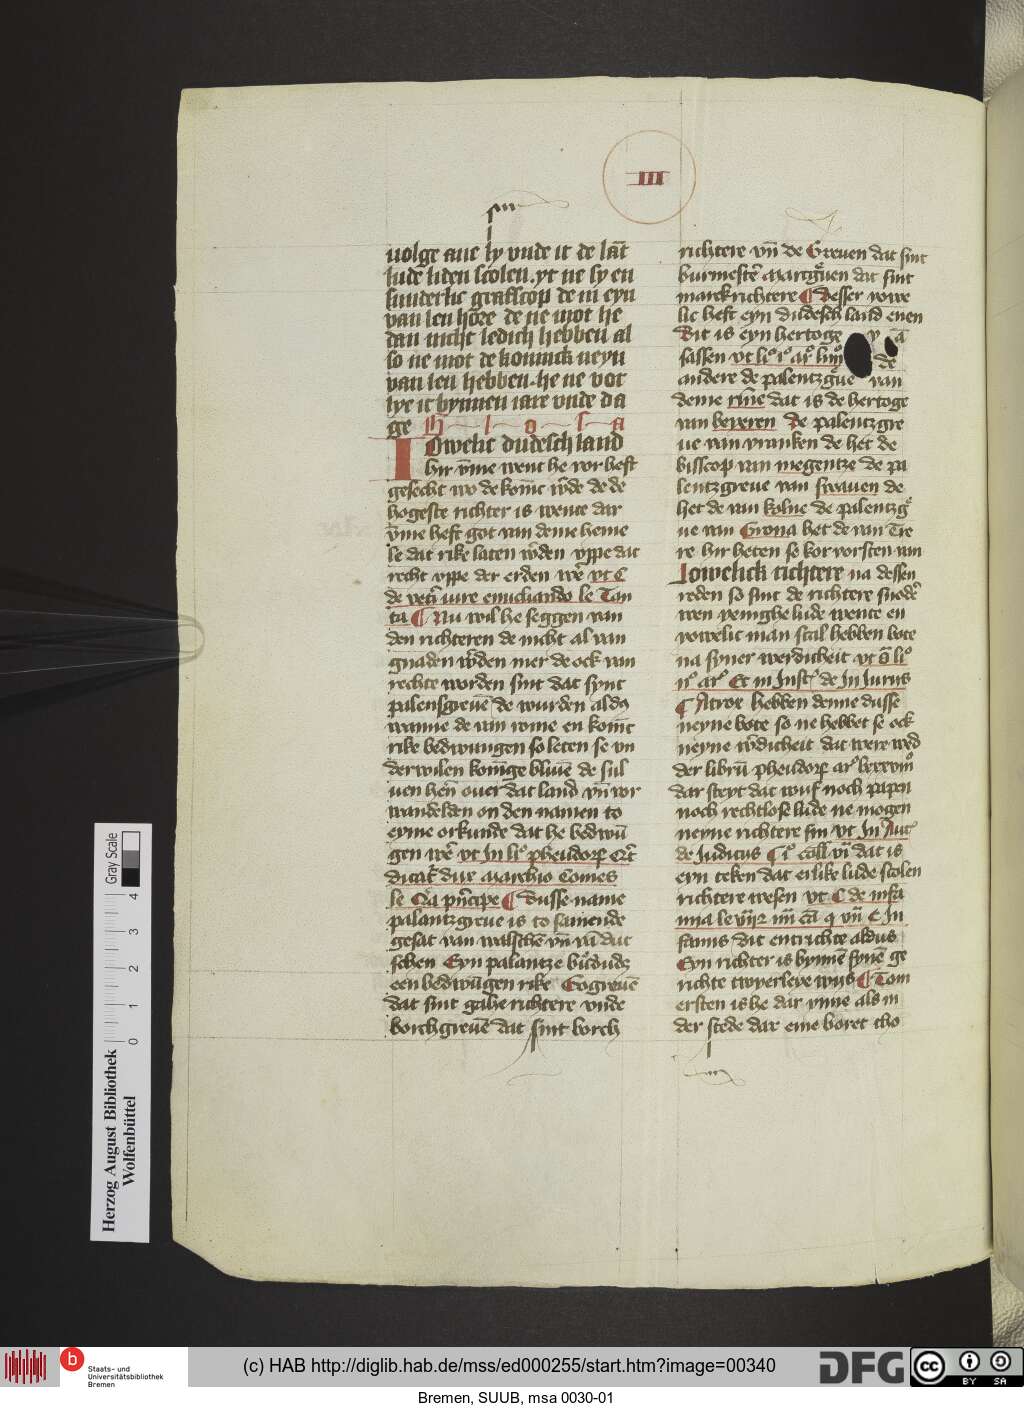 III
uolge aue sy vnde it de lāt
lude liden scolen. yt ne sy en
sunderlic grafscop de in eyn
van len hore de ne mot he
dan nicht ledich hebben al
so ne mot de koninck neyn
van len hebben. he ne vot
lye it bynnen iare vnde da
ge G l o s a
Iowelic dudesch land
hir v̄me went he vor heft
gesecht wo de konīc w̄de de de
hogeste richter is wente dar
v̄me heft got van deme heme
le dat rike laten w̄den vppe dat
recht vppe der erden wer̄ vt C
de vet̄i iure enucliando le Tan
ta Nu wil he seggen van
den richteren de nicht al van
gnaden w̄den mer de ock van
rechte worden sint dat synt
palensgreuē de wurden aldꝰ
wanne de van rome en konīc
rike bedwungen so leten se vn
derwilen konīge bliuē de sul
uen hēn ouer dat land vn̄ vor
wandelden on den namen to
eyme orkunde dat he bedwū
gen wer̄ vt In li° pheudorꝝ
dicat̄ dux marchio Comes
Dusse name
palantzgreue is to samende
gesat van walschē vn̄ vā dut
schen Eyn palantze
een bedwūgen rike Gogreuē
dat sint gahe richtere vnde
borchgreuē dat sint borch
richtere vn̄ de Greuen dat sint
burmestē marcgͣuen dat sint
marckrichtere Desser iowe
lic heft eyn dudesch land enen
Dit is eyn hertoge
sassen vt li° i° ar°
de
andere de palentzgͣue van
deme rine dat is de hertoge
van beyeren De palentzgre
ue van vranken de het de
bisscop van megentze De pa
lentzgreue van swauen de
het de van kolne De palentzgͣ
ue van Grona het de van Tre
re hir heten se kor vorsten van
Iowelick richtere na dessen
reden so sint de richtere snodeꝰ
wen veninghe lude wente en
iowelic man scal hebben bote
na syner werdicheit vt
ii° ar° Et in Inst̄ de In Iurus
Auer hebben denne dusse
neyne bote so ne hebbet se ock
neyne w̄dicheit dat were wed
der librū pheudorꝝ ar° lxxxviii°
dar steyt dat wuf noch papen
noch rechtlose lude ne mogen
neyne richtere sin vt In Aut̄
de Iudicus dat is
eyn teken dat erlike lude scolen
richtere wesen vt C de infa
mia
famis Dit entrichte aldus
Eyn richter is bynnē synē ge
richte twyerleye wys Tom
ersten is he dar vnne als in
der stede dar eme boret tho
Gray Scale
0 1 2 3 4
Herzog August Bibliothek
Wolfenbüttel
b
Staats- und
Universitätsbibliothek
Bremen
(c) HAB http://diglib.hab.de/mss/ed000255/start.htm?image=00340
DFG
cc BY SA
Bremen, SUUB, msa 0030-01